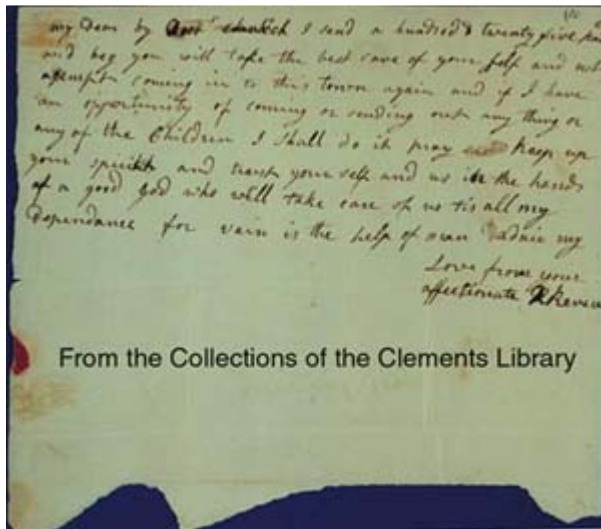 my Dear by Doct^r church I send a hundred & twenty five
and beg you will take the best care of your self and not
atempt coming in to this town again and if I have
an opportunity of coming or sending out any thing or
any of the Children I shall do it pray keep up
your spirits and trust your self and us in the hands
of a good god who will take care of us tis all my
Dependance for vain is the help of man adieu my
Love from your
affectionate R Revere
From the Collections of the Clements Library